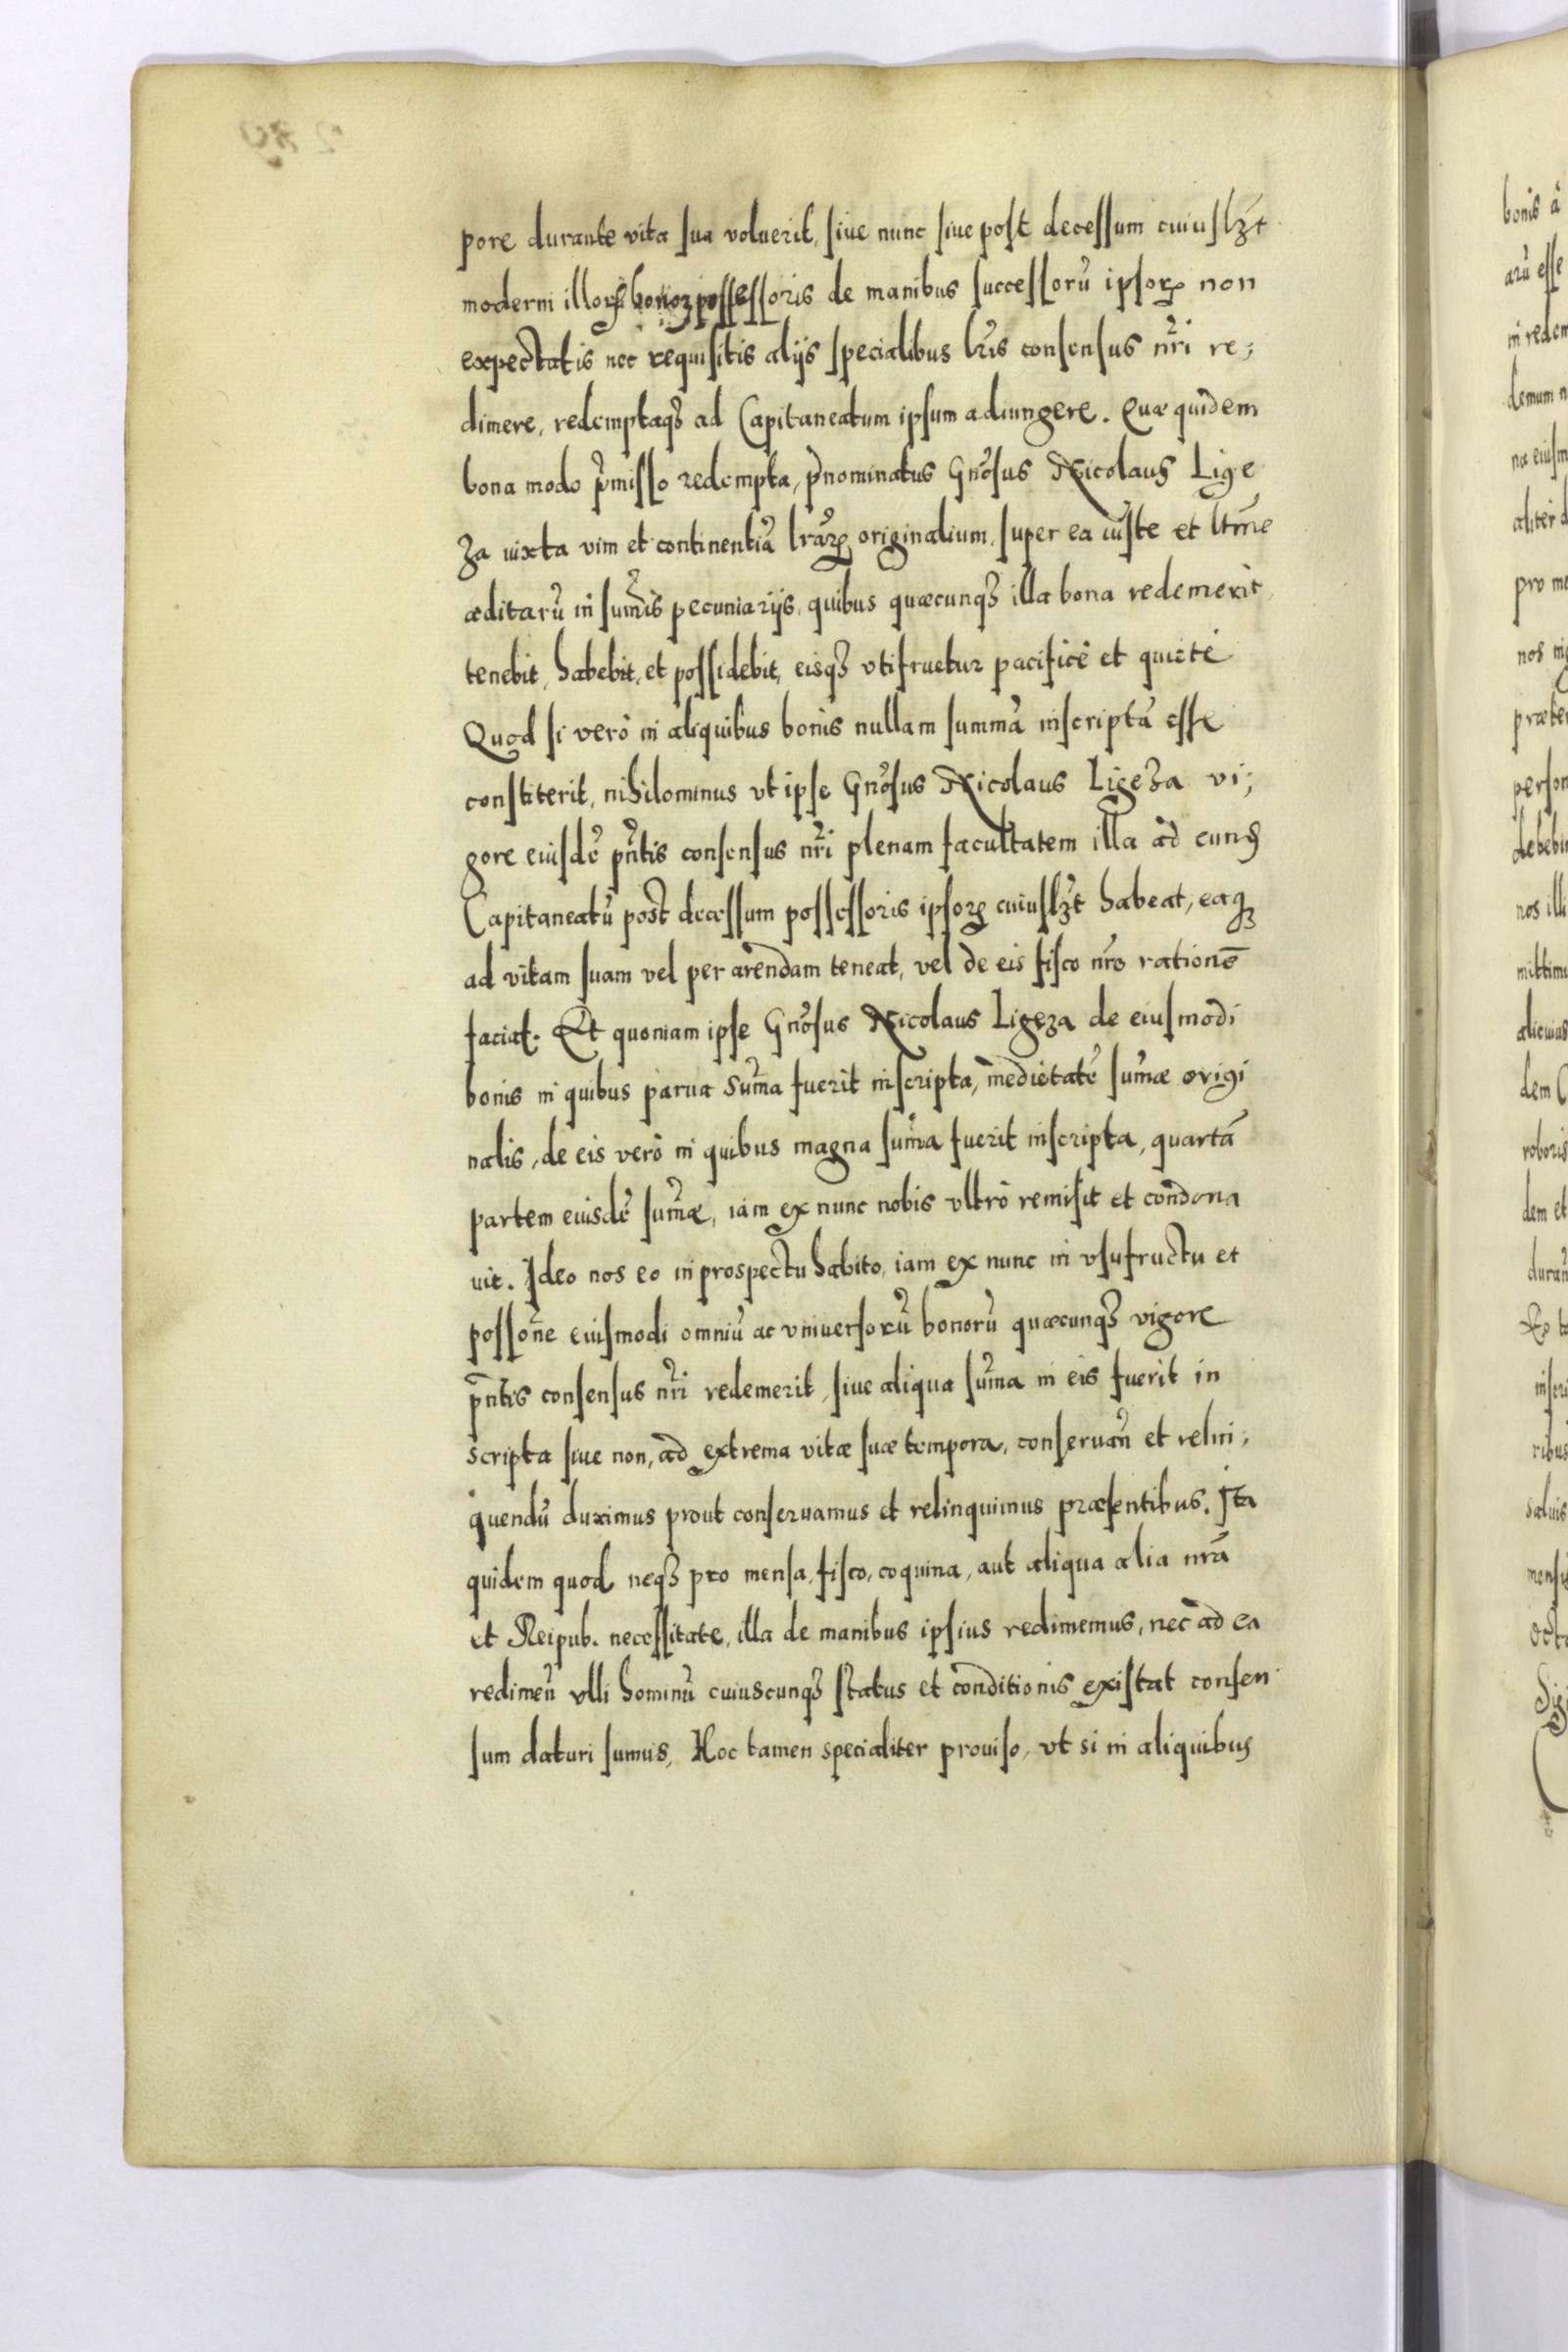 pore durante vita sua voluerit, siue nunc siue post decessum cuiuslʒt
moderni illorꝝ bonorꝝ possessoris de manibus successorũ ipsorꝝ non
expectatis nec requisitis alijs specialibus lr̃is consensus nr̃i re;
dimere, redemptaqꝫ ad Capitaneatum ipsum adiungere. Quæ quidem
bona modo p̃misso redempta, p̃nominatus Gnõsus Nicolaus Lige
za iuxta vim et continentiã lrãrꝝ originalium, super ea iuste et ltm̃e
æditarũ in sum̃is pecuniarijs, quibus quæcunqꝫ illa bona redemerit,
tenebit, habebit, et possidebit, eisqꝫ vtifruetur pacificè et quietè
Quod si verò in aliquibus bonis nullam summã inscriptã esse
constiterit, nihilominus vt ipse Gnõsus Nicolaus Ligeza vi;
gore eiusdẽ pñtis consensus nr̃i plenam facultatem illa ad eund
Capitaneatũ post decessum possessoris ipsorꝝ cuiuslʒt habeat, eaqꝫ
ad vitam suam vel per arendam teneat, vel de eis fisco nr̃o rationẽ
faciat. Et quoniam ipse Gnõsus Nicolaus Ligeza de eiusmodi
bonis in quibus parua sum̃a fuerit inscripta, medietatẽ sum̃æ origi
nalis, de eis verò in quibus magna sum̃a fuerit inscripta, quartã
partem eiusdẽ sum̃æ, iam ex nunc nobis vltrò remisit et condona
uit. Ideo nos eo in prospectu habito, iam ex nunc in vsufructu et
possoñe eiusmodi omniũ ac vniuersorũ bonorũ quæcunqꝫ vigore
pñtis consensus nr̃i redemerit, siue aliqua sum̃a in eis fuerit in
scripta siue non, ad extrema vitæ suæ tempora, conseruañ et relin;
quendũ duximus prout conseruamus et relinquimus præsentibus. Ita
quidem quod neqꝫ pro mensa, fisco, coquina, aut aliqua alia nrã
et Reipub. necessitate, illa de manibus ipsius redimemus, nec ad ea
redimeñ vlli hominũ cuiuscunqꝫ status et conditionis existat consen
sum daturi sumus, Hoc tamen specialiter prouiso, vt si in aliquibus
bonis à
arũ esse
in redem
demum n
na eiusm
aliter d
pro me
nos
præter
person
debebi
nos illi
mittimu
alicuius
dem C
roboris
dem et
durañ
inseri
ribus
saluis
mensi